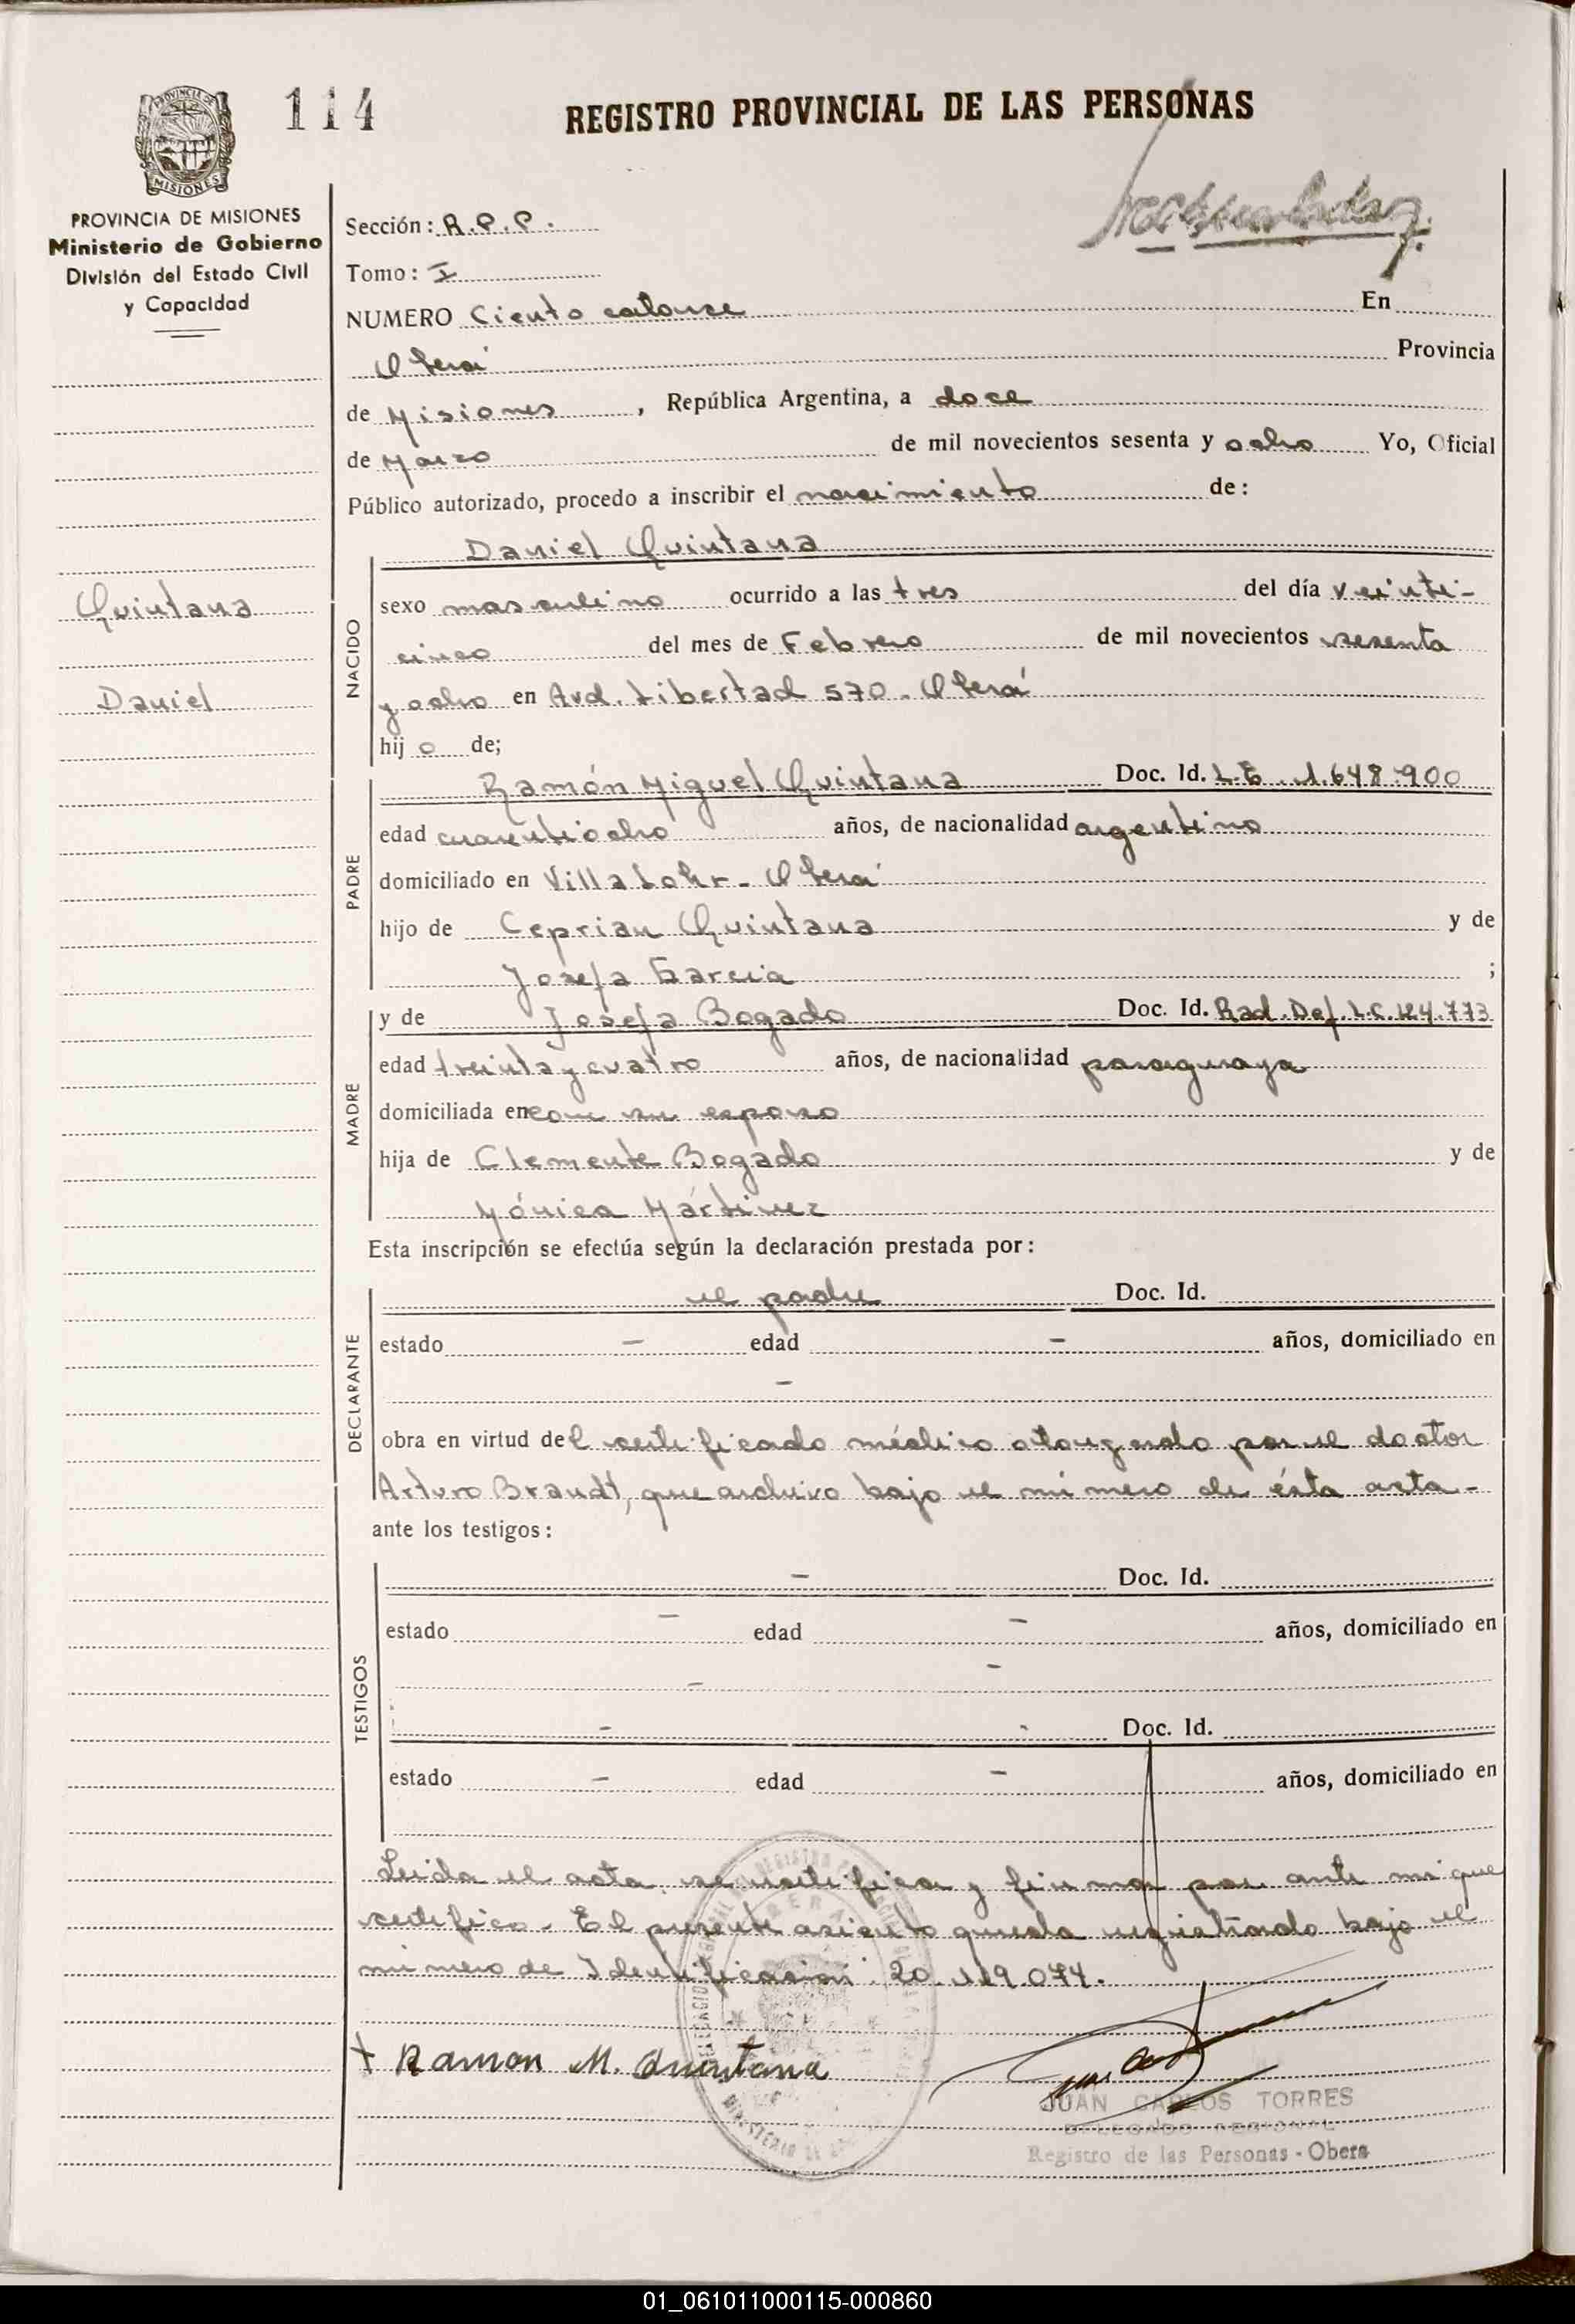 114
REGISTRO PROVINCIAL DE LAS PERSONAS
PROVINCIA DE MISIONES
MISIONES
PROVINCIA DE MISIONES
Ministerio de Gobierno
División del Estado Civil
y Capacidad
Quintana
Daniel
Sección: R.P.P.
Tomo: I
NUMERO Ciento catorce En
Oberá Provincia
de Misiones, República Argentina, a doce
de Marzo de mil novecientos sesenta y ocho Yo, Oficial
Público autorizado, procedo a inscribir el nacimiento de:
NACIDO
Daniel Quintana
sexo masculino ocurrido a las tres del día veinti-
cinco del mes de Febrero de mil novecientos sesenta
y ocho en Avd. Libertad 570 - Oberá
hijo de;
PADRE
Ramón Miguel Quintana Doc. Id. L.E. 1.648.900
edad cuarentiocho años, de nacionalidad argentino
domiciliado en Villa Lohr - Oberá
hijo de Ceprian Quintana y de
Josefa Garcia ;
MADRE
y de Josefa Bogado Doc. Id. Rad. Def. L.C. 124.773
edad treinta y cuatro años, de nacionalidad paraguaya
domiciliada en con su esposo
hija de Clemente Bogado y de
Mónica Mártinez
Esta inscripción se efectúa según la declaración prestada por:
DECLARANTE
el padre Doc. Id.
estado - edad - años, domiciliado en
-
obra en virtud del certificado médico otorgado por el doctor
Arturo Brandt, que archivo bajo el número de ésta acta-
ante los testigos:
TESTIGOS
- Doc. Id.
estado - edad - años, domiciliado en
- -
- - Doc. Id.
estado - edad - años, domiciliado en
Leida el acta, se ratifica y firma por ante mi que
certifico. El presente asiento queda registrado bajo el
número de Identificación: 20.119.074.
+ Ramon M. Quintana
JUAN CARLOS TORRES
DELEGADO REGIONAL
Registro de las Personas - Obera
01_061011000115-000860